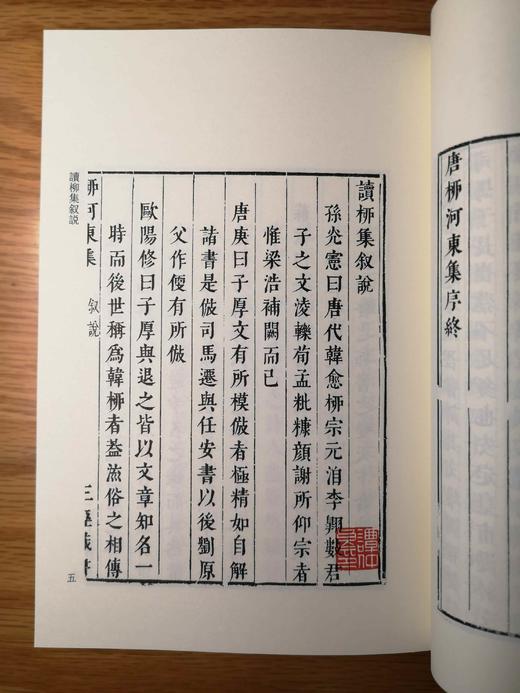 唐栁河東集序終
讀栁集叙說
孫光憲曰唐代韓愈栁宗元洎李翱數君
子之文淩轢荀孟粃糠顏謝所仰宗者
惟梁浩補闕而已
唐庚曰子厚文有所模倣者極精如自解
諸書是倣司馬遷與任安書以後劉原
父作便有所倣
歐陽修曰子厚與退之皆以文章知名一
時而後世稱爲韓栁者葢流俗之相傳
栁河東集 叙說
讀柳集叙説
五